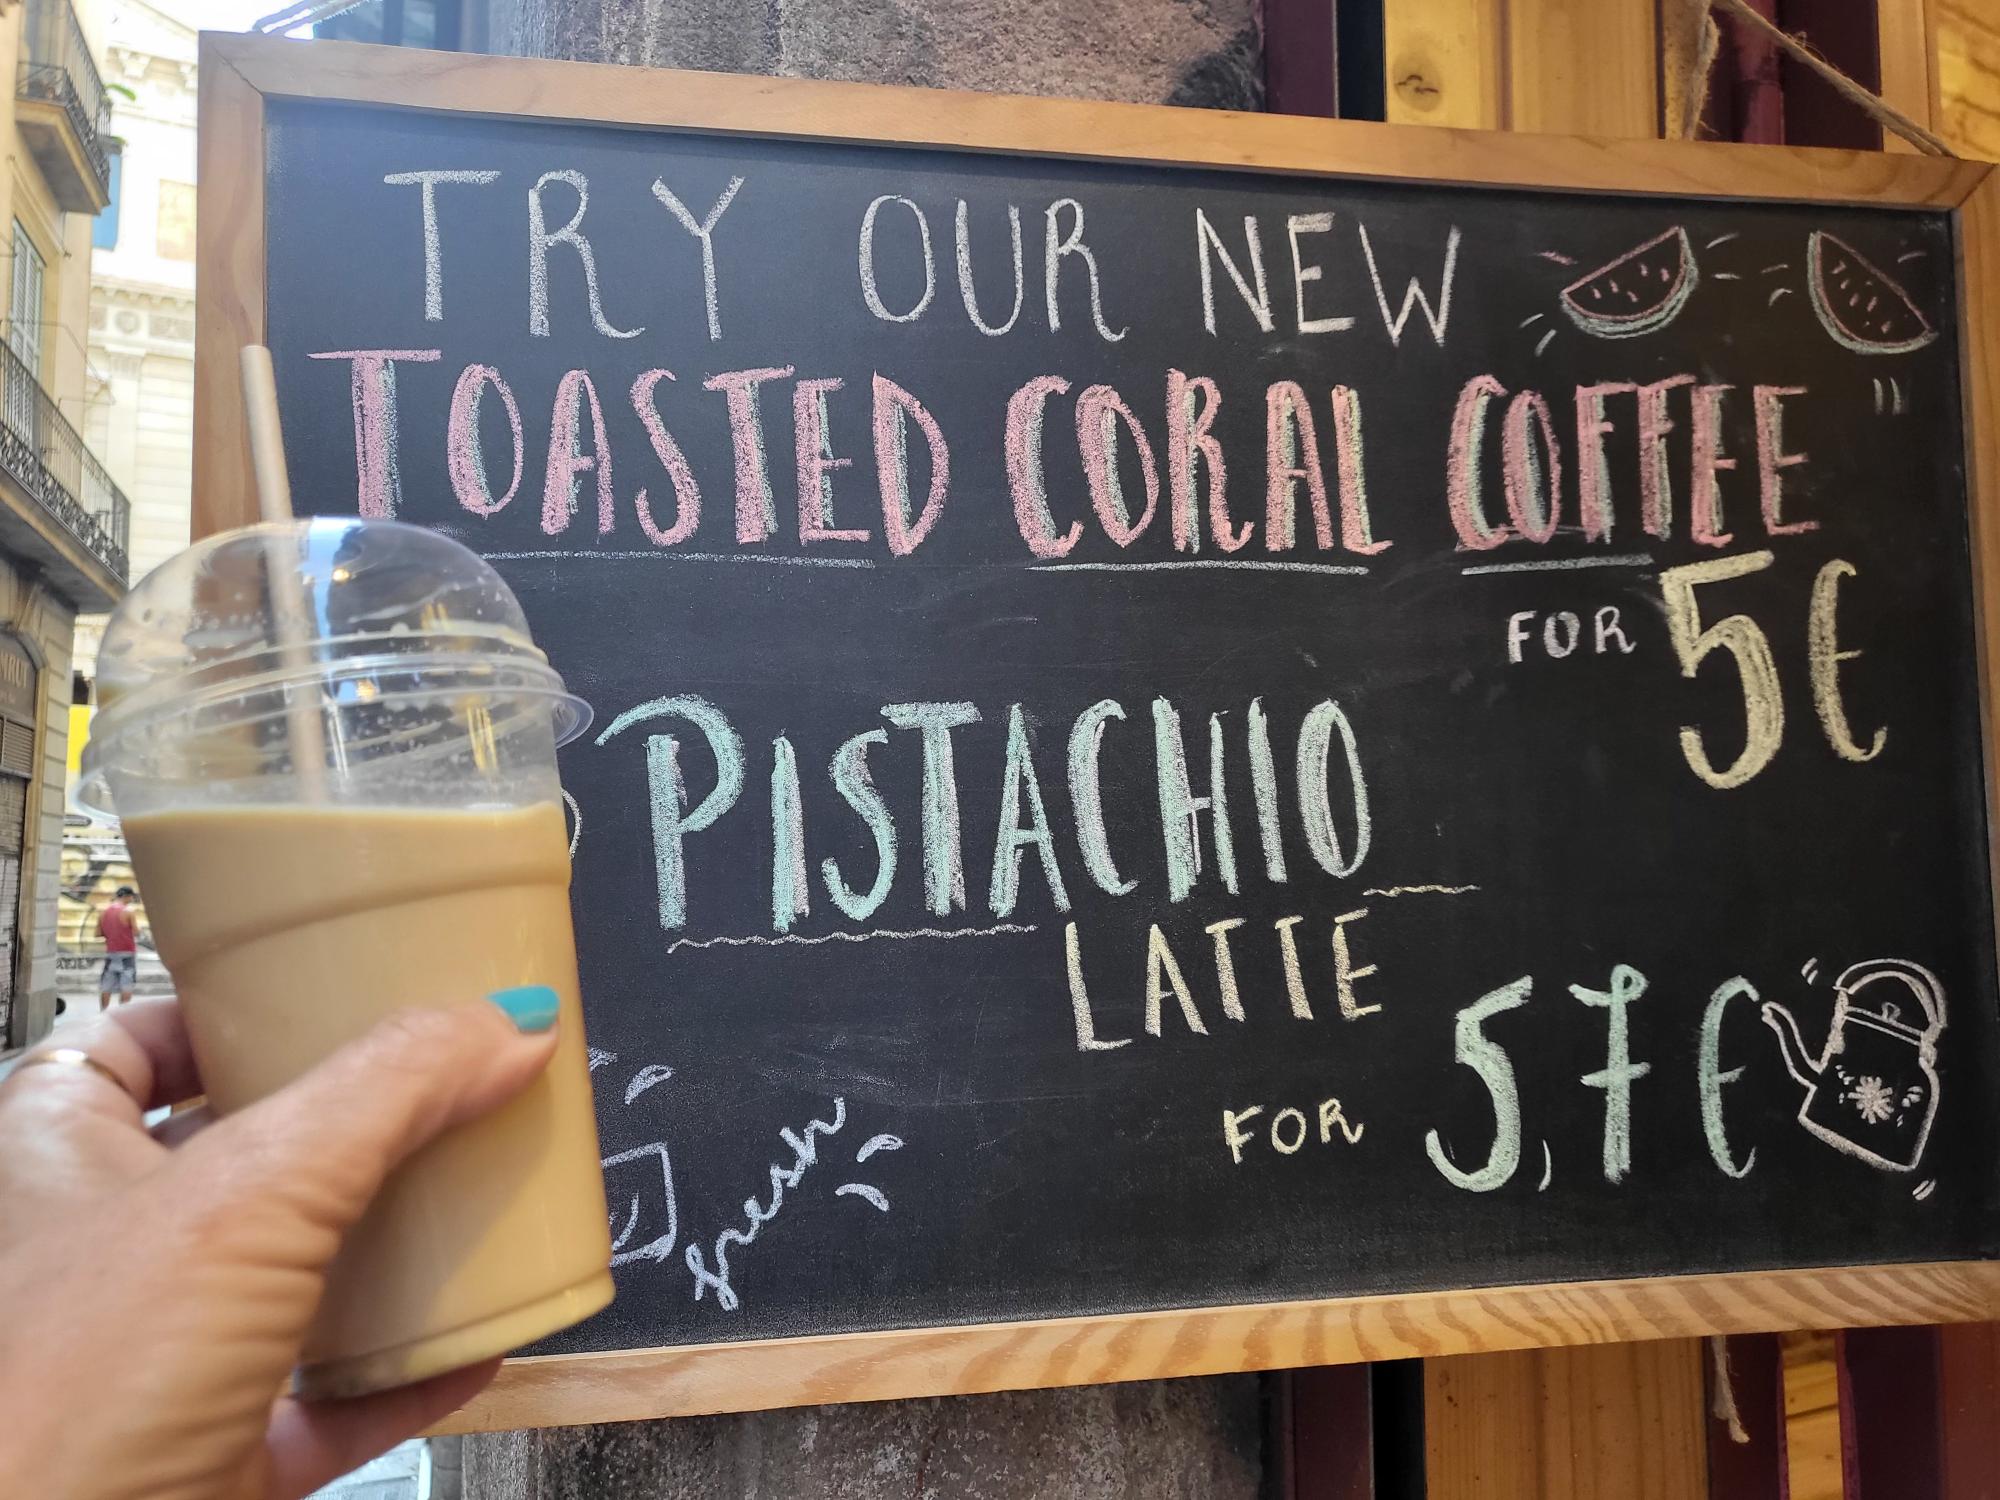 TRY OUR NEW
TOASTED CORAL COFFEE
FOR 5€
PISTACHIO
LATTE
FOR 5,7€
fresh